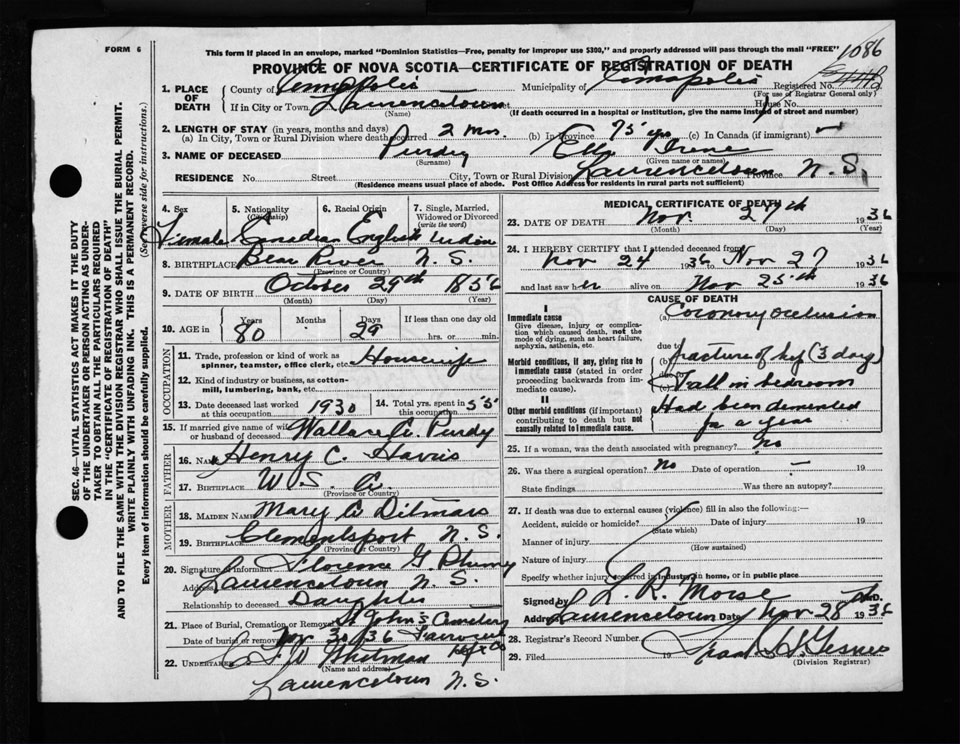 FORM 6
This form if placed in an envelope, marked "Dominion Statistics—Free, penalty for improper use $300," and properly addressed will pass through the mail "FREE"
1086
PROVINCE OF NOVA SCOTIA—CERTIFICATE OF REGISTRATION OF DEATH
1. PLACE OF DEATH
County of Annapolis Municipality of Annapolis Registered No.
(For use of Registrar General only)
If in City or Town, Lawrencetown Street House No.
(Name) (If death occurred in a hospital or institution, give the name instead of street and number)
2. LENGTH OF STAY (in years, months and days)
(a) In City, Town or Rural Division where death occurred 2 mos. (b) In Province 75 yrs (c) In Canada (if immigrant) —
3. NAME OF DECEASED Purdy Ella Irene
(Surname) (Given name or names)
RESIDENCE No. Street City, Town or Rural Division Lawrencetown Province N. S.
(Residence means usual place of abode. Post Office Address for residents in rural parts not sufficient)
4. Sex 5. Nationality (Citizenship) 6. Racial Origin 7. Single, Married, Widowed or Divorced (write the word)
Female Canadian English Widow
8. BIRTHPLACE Bear River N. S.
(Province or Country)
9. DATE OF BIRTH October 29th 1856
(Month) (Day) (Year)
10. AGE in Years Months Days If less than one day old
80 29 hrs. or min.
OCCUPATION
11. Trade, profession or kind of work as spinner, teamster, office clerk, etc. Housewife
12. Kind of industry or business, as cotton-mill, lumbering, bank, etc.
13. Date deceased last worked at this occupation 1930 14. Total yrs. spent in this occupation 55
15. If married give name of wife or husband of deceased Wallace G. Purdy
FATHER
16. Name Henry C. Harris
17. BIRTHPLACE U. S. A.
(Province or Country)
MOTHER
18. MAIDEN NAME Mary A. Ditmars
19. BIRTHPLACE Clementsport N. S.
(Province or Country)
20. Signature of informant Florence G.
Address Lawrencetown N. S.
Relationship to deceased Daughter
21. Place of Burial, Cremation or Removal St John's Cemetery
Date of burial or removal Nov 30/36 Fairview Hfx Co
22. UNDERTAKER Whitman
(Name and address)
Lawrencetown N. S.
MEDICAL CERTIFICATE OF DEATH
23. DATE OF DEATH Nov. 27th 1936
(Month) (Day) (Year)
24. I HEREBY CERTIFY that I attended deceased from
Nov 24 1936 to Nov 27 1936
and last saw her alive on Nov 25th 1936
CAUSE OF DEATH
I
Immediate cause
Give disease, injury or complication which caused death, not the mode of dying, such as heart failure, asphyxia, asthenia, etc.
(a) Coronary occlusion
due to
Morbid conditions, if any, giving rise to immediate cause (stated in order proceeding backwards from immediate cause).
(b) fracture of hip (3 days)
due to
(c) Fall in bedroom
II
Other morbid conditions (if important) contributing to death but not causally related to immediate cause.
Had been demented
for a year
25. If a woman, was the death associated with pregnancy? no
26. Was there a surgical operation? no Date of operation — 19
State findings Was there an autopsy?
27. If death was due to external causes (violence) fill in also the following:—
Accident, suicide or homicide? Date of injury 19
(State which)
Manner of injury
(How sustained)
Nature of injury
Specify whether injury occurred in industry, in home, or in public place
Signed by L. R. Morse M.D.
Address Lawrencetown Date Nov 28 1936
28. Registrar's Record Number
29. Filed 19
(Division Registrar)
SEC. 46—VITAL STATISTICS ACT MAKES IT THE DUTY
OF THE UNDERTAKER OR PERSON ACTING AS UNDER-
TAKER TO OBTAIN ALL THE PARTICULARS REQUIRED
IN THE "CERTIFICATE OF REGISTRATION OF DEATH"
AND TO FILE THE SAME WITH THE DIVISION REGISTRAR WHO SHALL ISSUE THE BURIAL PERMIT.
WRITE PLAINLY WITH UNFADING INK. THIS IS A PERMANENT RECORD.
Every item of information should be carefully supplied.
(See reverse side for instructions.)